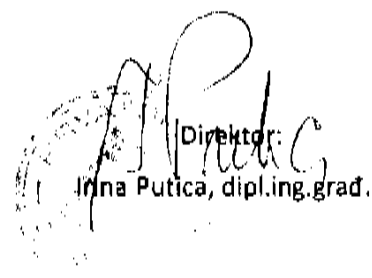 Direktor:
Irina Putica, dipl.ing.građ.